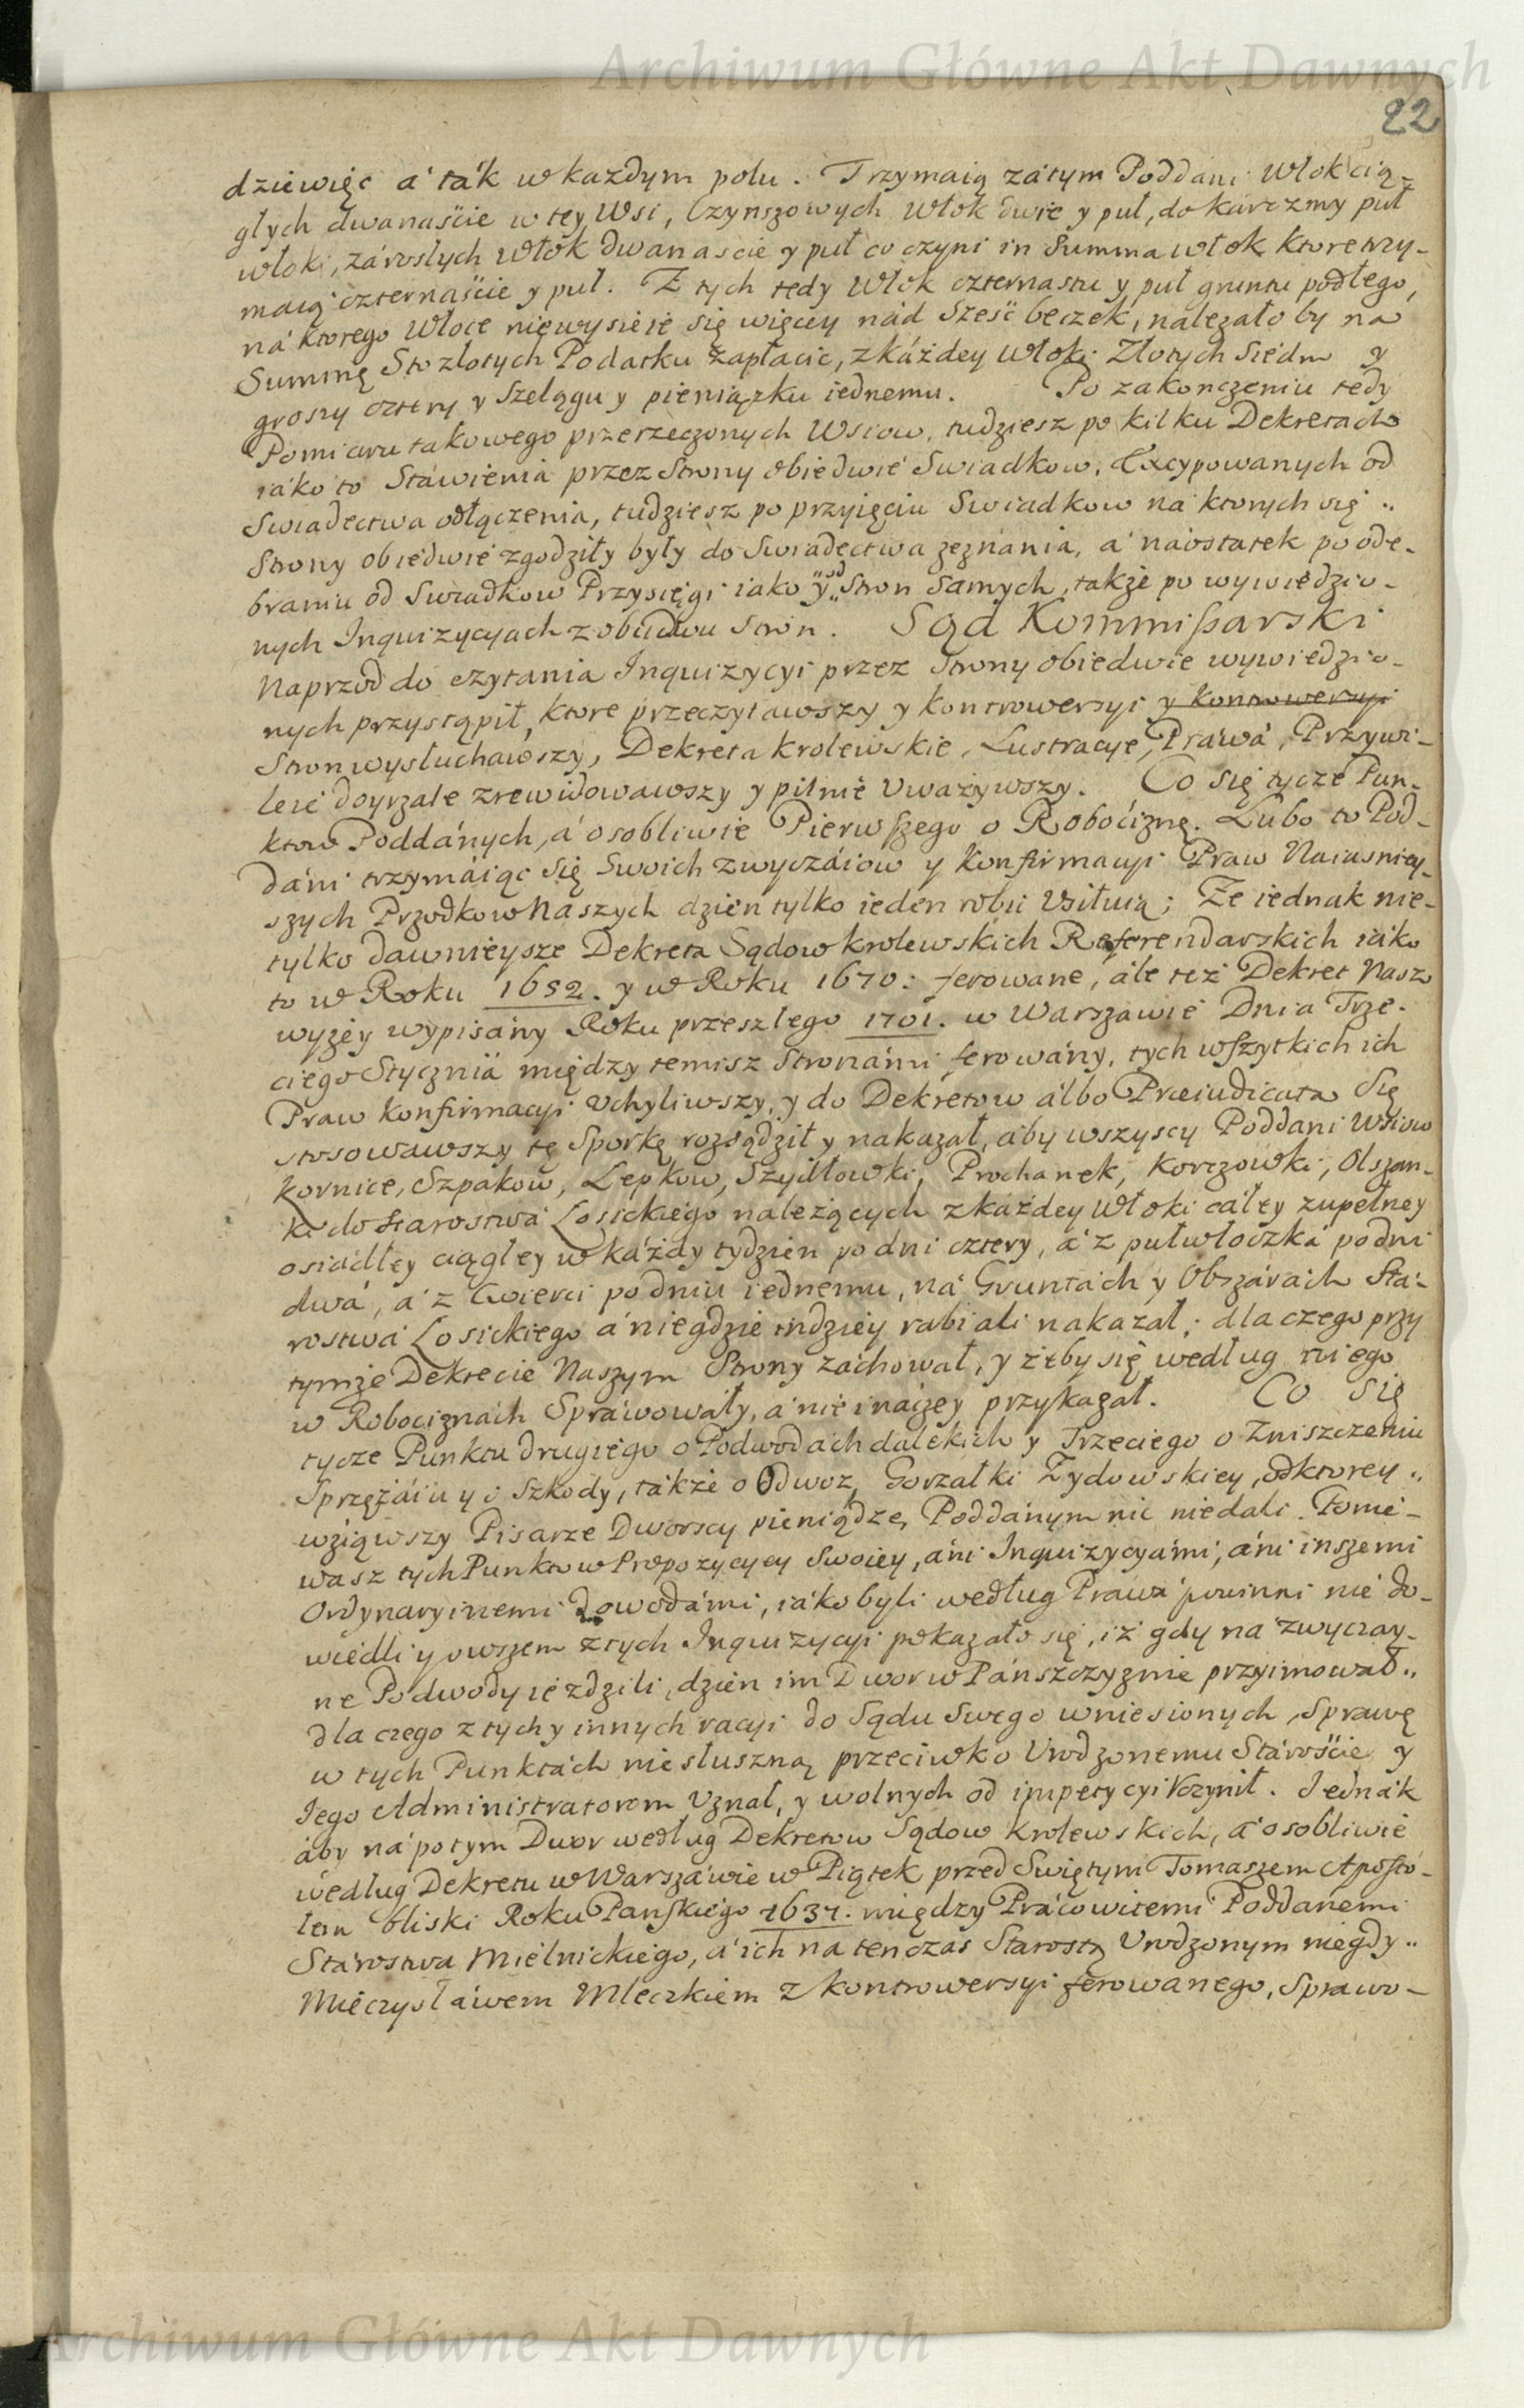 Archiwum Główne Akt Dawnych
22
dziewięć á ták w kazdym polu. Trzymaią zátym Poddani Włok cią-
głych dwanaście w tey Wsi, Czynszowych Włok dwie y puł, do kárczmy puł
włoki, zárosłych Włok dwanaście y puł co czyni in Summa włok ktore trzy-
maią czternaście y puł. Z tych tedy Włok czternastu y puł gruntu podłego,
ná ktorego Włoce niewysieie się więcey nád Sześć beczek, należało by na
Summę Sto złotych Podatku zapłacić, z káżdey Włoki Złotych Siedm y
groszy cztery y Szelągu y pieniązku iednemu. Po zakonczeniu tedy
Pomiaru takowego przerzeczonych Wsiow, tudziesz po kilku Dekretach
iáko to Stáwienia przez Strony obiedwie Swiadkow, Excypowanych od
Swiadectwa odłączenia, tudziesz po przyięciu Swiadkow na ktorych się
Strony obiedwie zgodziły były do Swiadectwa zeznania, á náostatek po ode-
braniu od Swiadkow Przysięgi iako y od Stron Samych, także po wywiedzio-
nych Inquizycyach z obudwu Stron. Sąd Kommissarski
Naprzod do czytania Inquizycyi przez Strony obiedwie wywiedzio-
nych przystąpił, ktore przeczytawszy y kontrowersyi y kontrowersyi
Stron wysłuchawszy, Dekreta krolewskie, Lustracye, Prawá, Przywi-
leie doyrzale zrewidowawszy y pilnie Uważywszy. Co się tycze Pun-
ktow Poddánych, á osobliwie Pierwszego o Robociznę. Lubo to Pod-
dáni trzymáiąc się Swoich zwyczáiow y Konfirmacyi Praw Naiasniey-
szych Przodkow Naszych dzien tylko ieden robić Usiłuią; Ze iednak nie-
tylko dawnieysze Dekreta Sądow krolewskich Referendarskich iáko
to w Roku 1652. y w Roku 1670: ferowane, ále też Dekret Nasz
wyzey wypisány Roku przeszłego 1701. w Warszawie Dnia Trze-
ciego Stycznia między temisz Stronámi ferowány, tych wszytkich ich
Praw Konfirmacyi Uchyliwszy, y do Dekretow álbo Præiudicata Się
stosowawszy tę Sporkę rozsądził y nakazał, áby wszyscy Poddani Wsiow
Kornice, Szpakow, Lepkow, Szydłowki, Prochanek, Korczowki, Olszan-
ki do starostwá Łosickiego należących z káżdey Włoki całey zupełney
osiádłey ciągłey w káżdy tydzien po dni cztery, á z pułwłoczká po dni
dwá, á z Cwierci po dniu iednemu, ná Gruntách y Obszárách Stá-
rostwá Łosickiego á niegdzie indziey rabiali nakazał; dla czego przy
tymże Dekrecie Naszym Strony záchował, y żeby się według niego
w Robociznach Spráwowáły, á nie ináczey przykazał. Co Się
tycze Punktu drugiego o Podwodách dalekich y Trzeciego o Zniszczeniu
Sprzężáiu y o Szkody, tákże o Odwoz Gorzałki Zydowskiey, od ktorey
wziąwszy Pisarze Dworscy pieniądze, Poddánym nic niedali. Ponie-
wasz tych Punktow Propozycyey Swoiey, áni Inquizycyámi, áni inszemi
Ordynaryinemi dowodámi, iáko byli według Prawá powinni nie do-
wiedli y owszem z tych Inquizycyi pokazało się, iż gdy na zwyczay-
ne Podwody ieździli, dzien im Dwor w Pánszczyznie przyimował
dla czego z tych y innych racyi do Sądu Swego wniesionych, Sprawę
w tych Punktách niesłuszną przeciwko Urodzonemu Stároście y
Iego Administratorom Uznał, y wolnych od impetycyi Uczynił. Iednák
áby ná potym Dwor według Dekretow Sądow krolewskich, á osobliwie
według Dekretu w Warszáwie w Piątek przed Swiętym Tomaszem Aposto-
łem bliski Roku Panskiego 1637. między Prácowitemi Poddánemi
Stárostwa Mielnickiego, á ich na tenczas Starostą Urodzonym niegdy
Mieczysłáwem Mleczkiem z kontrowersyi ferowanego, Sprawo-
Archiwum Główne Akt Dawnych